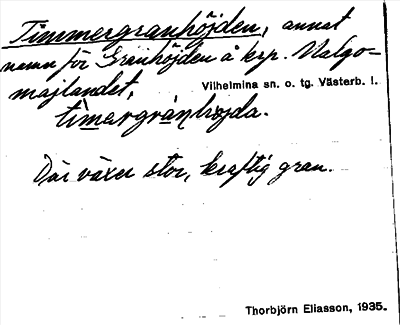 Timmergranhöjden, annat
namn för Granhöjden å krp. Malgo-
majlandet.
Vilhelmina sn. o. tg. Västerb. l.
Där växer stor, kraftig gran.
Thorbjörn Eliasson, 1935.